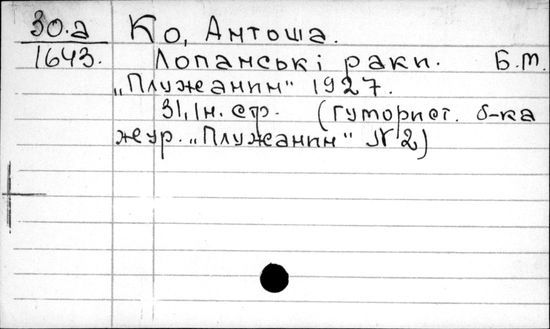 30.а Ко, Антоша.
1643. Лопанські раки. Б.м.
„Плужанин" 1927.
31, Ін. стр. (гуморист. б-ка
жур. „Плужанин" №2)